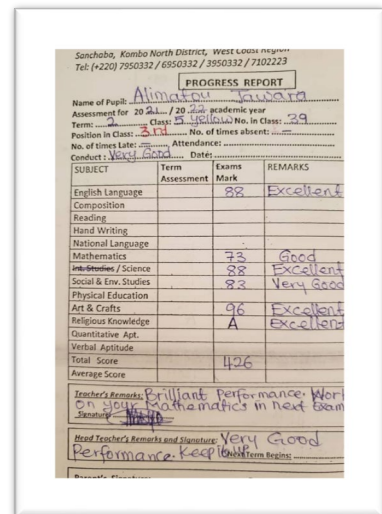 Sanchaba, Kombo North District, West Coast Region
Tel: (+220) 7950332 / 6950332 / 3950332 / 7102223
PROGRESS REPORT
Name of Pupil: Alimatou Jawara
Assessment for 2021 / 2022 academic year
Term: 2 Class: 5 yellow No. in Class: 39
Position in Class: 3rd No. of times absent: —
No. of times Late: — Attendance:
Conduct: Very Good Date:
SUBJECT Term Assessment Exams Mark REMARKS
English Language 88 Excellent
Composition
Reading
Hand Writing
National Language
Mathematics 73 Good
Int. Studies / Science 88 Excellent
Social & Env. Studies 83 Very Good
Physical Education
Art & Crafts 96 Excellent
Religious Knowledge A Excellent
Quantitative Apt.
Verbal Aptitude
Total Score 426
Average Score
Teacher's Remarks: Brilliant Performance. Work
on your Mathematics in next exam
Signature
Head Teacher's Remarks and Signature: Very Good
Performance. Keep it up Next Term Begins:
Parent's Signature: